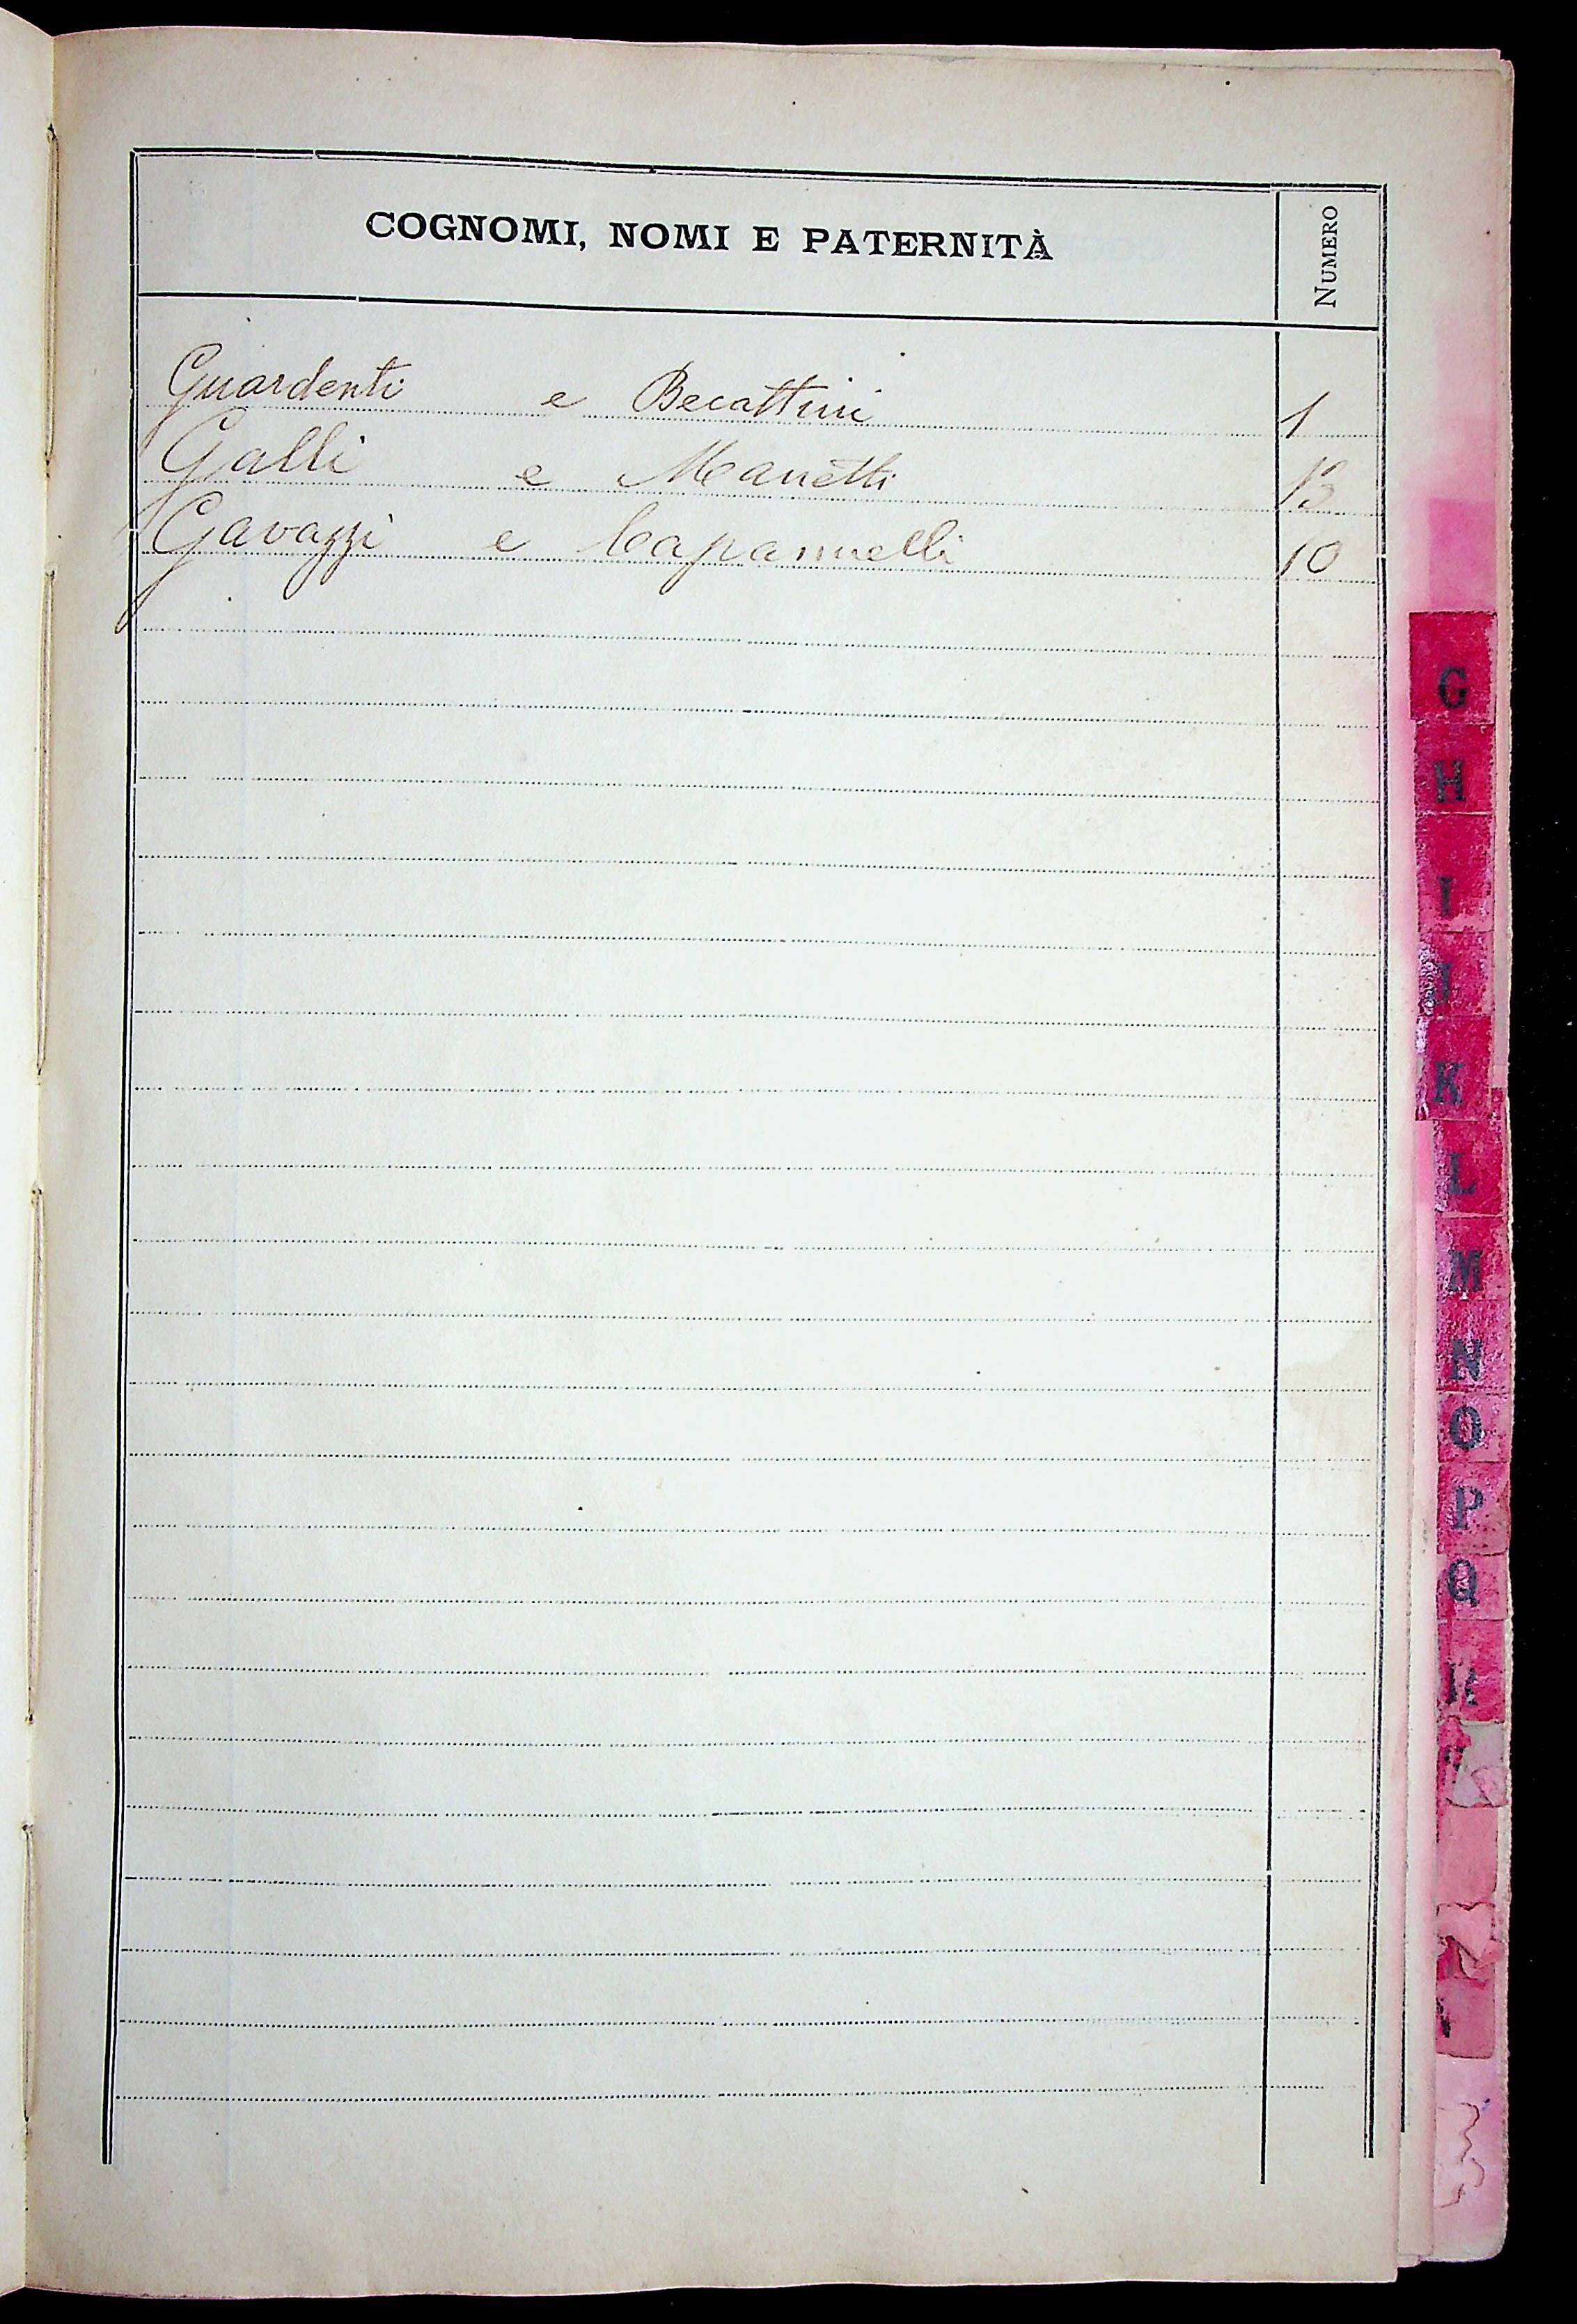 COGNOMI, NOMI E PATERNITÀ NUMERO
Guardenti e Becattini 1
Galli e Manetti 13
Gavazzi e Capannelli 10
G
H
I
J
K
L
M
N
O
P
Q
R